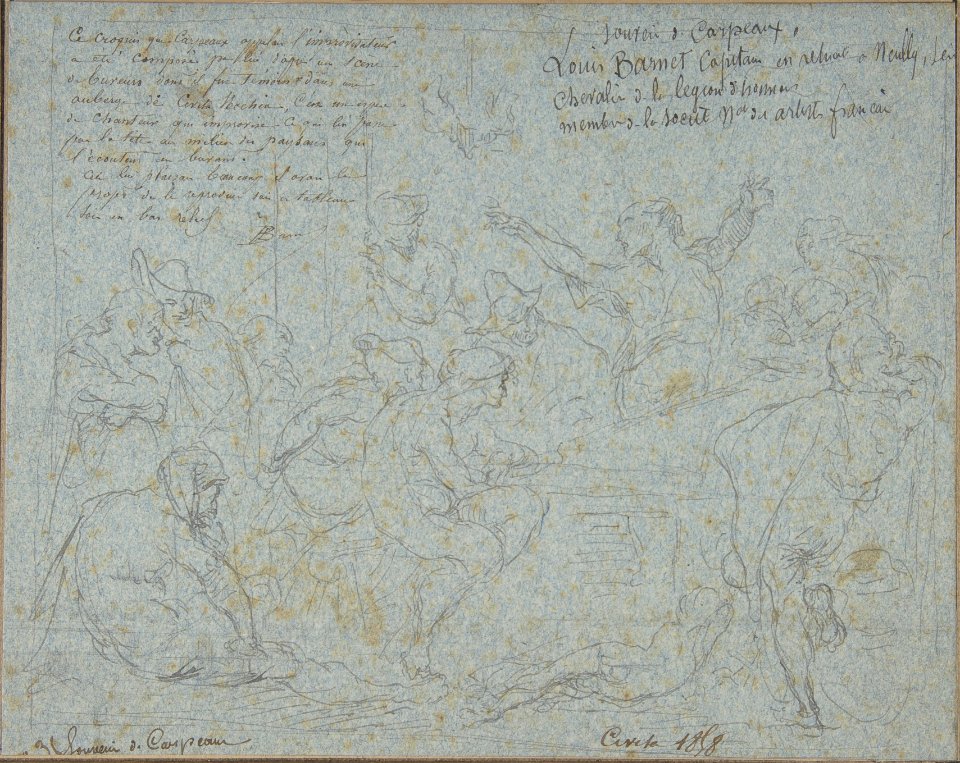 Ce croquis que Carpeaux appelait l'improvisateur
a été composé par lui d'après une scène
de buveurs dont il fut témoin dans une
auberge de Civita Vecchia. C'est une espèce
de chanteur qui improvise ce qui lui passe
par la tête au milieu des paysans qui
l'écoutent en buvant.
Cela lui plaisait beaucoup il avait le
projet de le reproduire soit en tableau
soit en bas relief
Souvenir de Carpeaux,
Louis Barnet Capitaine en retraite à Neuilly,
Chevalier de la legion d'honneur
membre de la Societé Nale des artistes français
Souvenir de Carpeaux
Civita 1858